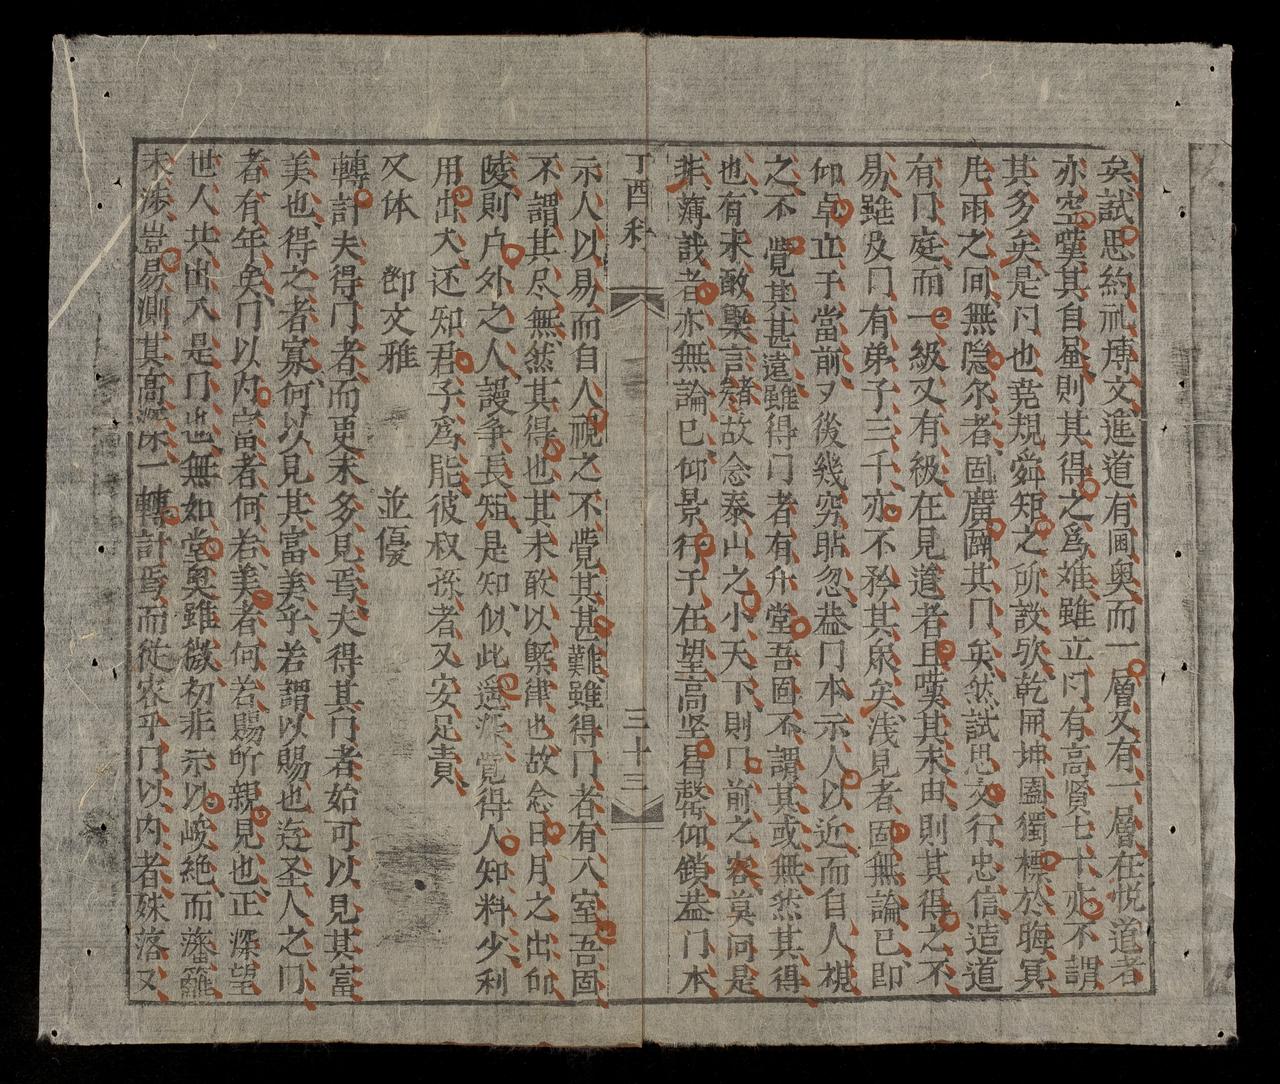 矣試思約礼博文進道有圃奥而一層又有一層在悦道者
亦空嘆其自昼則其得之爲难雖立门有高賢七十亦不謂
其多矣是门也尭規舜矩之所設欤乾開坤闔獨標於晦冥
风雨之间無隐尔者固廣闢其门矣然試思文行忠信造道
有门庭而一級又有級在見道者且嘆其末由則其得之不
易雖及门有弟子三千亦不矜其衆矣浅見者固無論已即
仰卓立于當前歹後幾穷跕忽葢门本示人以近而自人視
之不覺其甚遠雖得门者有升堂吾固不謂其或無然其得
也有未敢槩言緒故念泰山之小天下則门前之客莫问是
非薄哉者亦無論已仰景行于在望高坚昌罄仰鎖葢门本
丁酉科 三十三
示人以易而自人視之不覺其甚難雖得门者有入室吾固
不謂其尽無然其得也其未敢以槩律也故念日月之出卯
陵則户外之人謾争長短是知似此遥深覚得人知料少利
用出犬还知君子爲能彼叔孫者又安足責
又体 鄧文雅 並優
轉計夫得门者而更末多見焉夫得其门者始可以見其富
美也得之者寡何以見其富美乎若謂以賜也迩圣人之门
者有年矣门以内富者何若美者何若賜所親見也正深望
世人共出入是门也無如堂奥雖微初非示以峻絶而藩籬
未涉豈易測其高深一轉計焉而從容乎门以内者殊落又